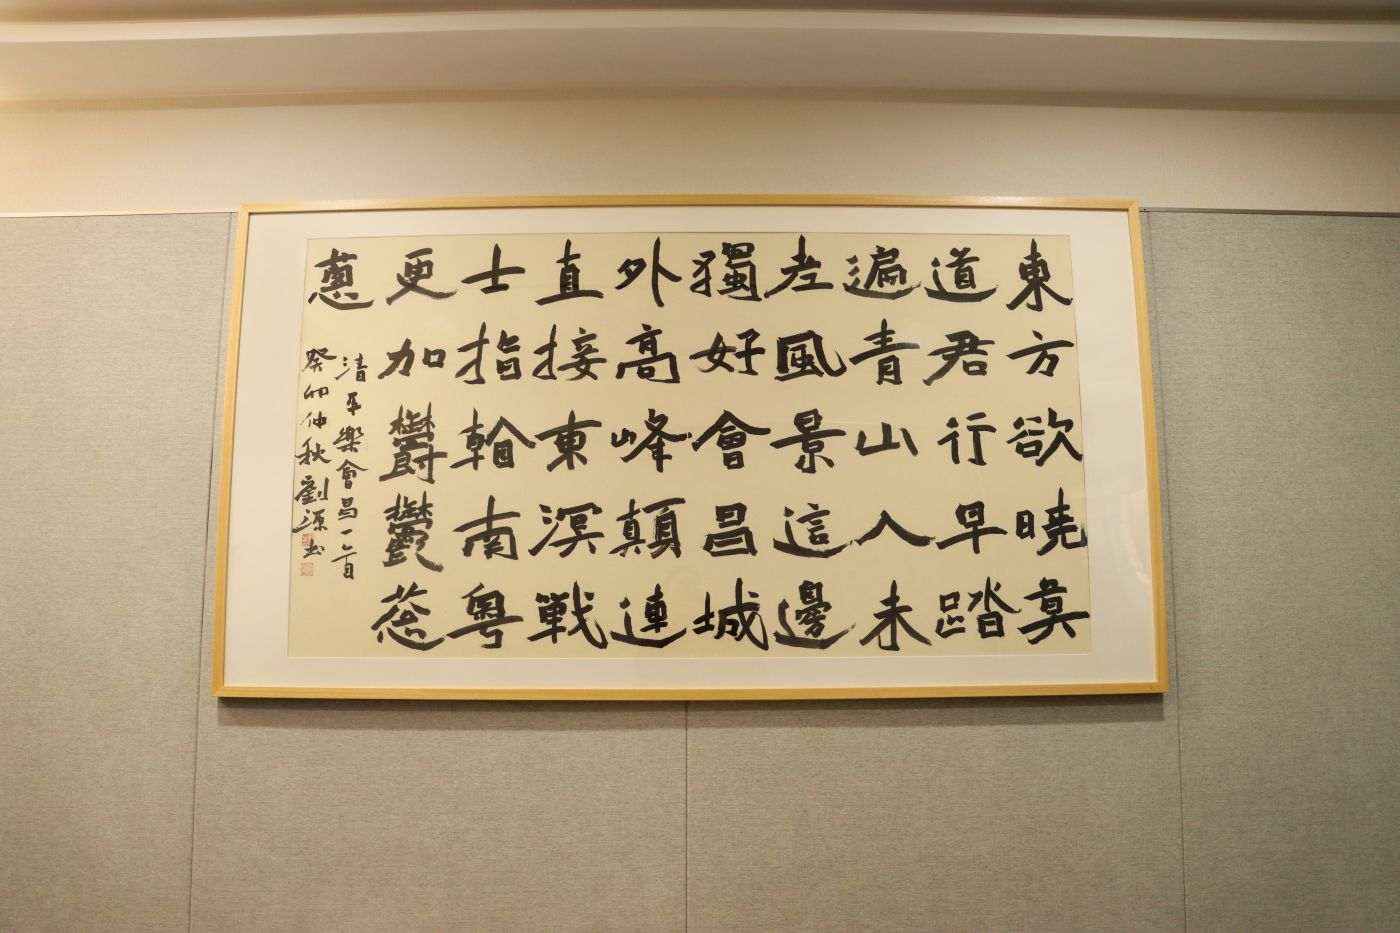 東方欲曉莫
道君行早踏
遍青山人未
老風景這邊
獨好會昌城
外高峰顛連
直接東溟戦
士指看南粤
更加鬱鬱葱
蔥
清平樂會昌一首
癸卯仲秋劉源书